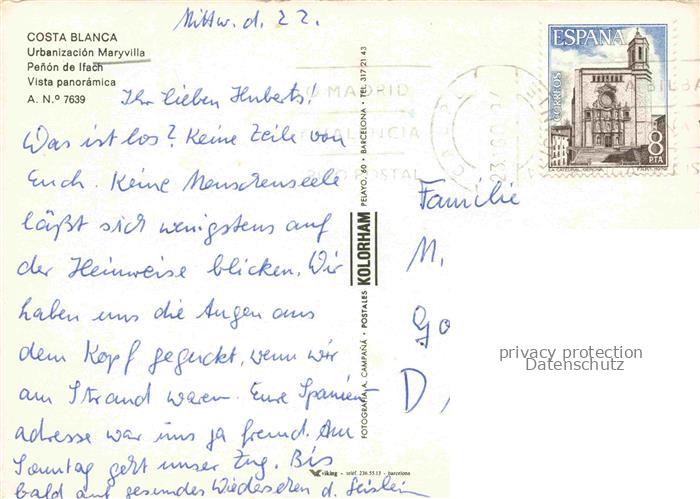 Mittw. d. 22.
COSTA BLANCA
Urbanización Maryvilla
Peñón de Ifach
Vista panorámica
A. N.º 7639
Ihr lieben Huberts!
Was ist los? Keine Zeile von
Euch. Keine Menschenseele
läßt sich wenigstens auf
der Heimweise blicken. Wir
haben uns die Augen aus
dem Kopf geguckt, wenn wir
am Strand waren. Eure Spanien-
adresse war uns ja fremd. Am
Sonntag geht unser Zug. Bis
bald auf gesundes Wiedersehen d.
FOTOGRAFIA A. CAMPAÑÁ · POSTALES KOLORHAM PELAYO, 60 · BARCELONA · TEL. 317 21 43
viking - teléf. 236.55.13 - barcelona
MADRID
VALENCIA
POSTAL
BILBA
ESPAÑA
CORREOS
8
PTA
LA CATEDRAL. GERONA
Familie
M.
Go
D,
privacy protection
Datenschutz